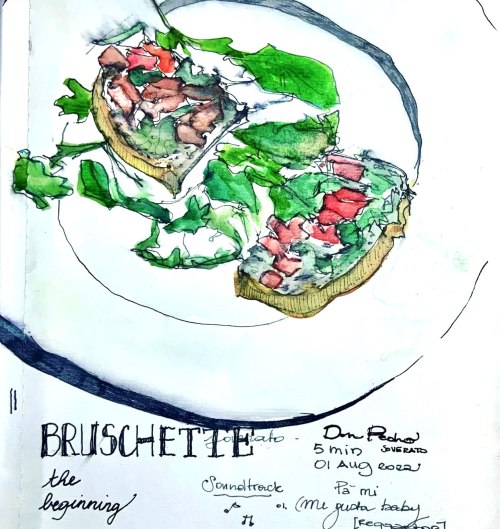 BRUSCHETTE
the
beginning
Don Pedro
5 min SOVERATO
01 Aug 2022
Soundtrack
01. Pa mi
(Me gusta baby